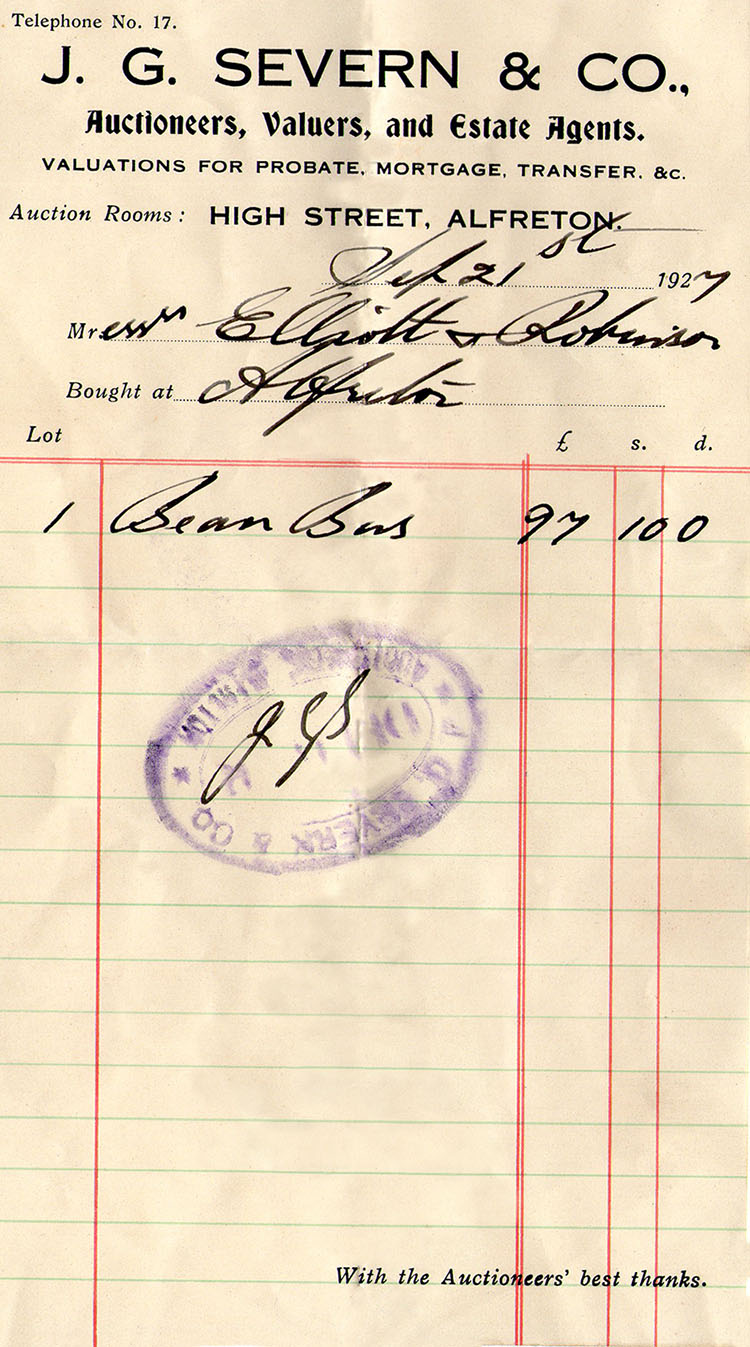 Telephone No. 17.
J. G. SEVERN & CO.,
Auctioneers, Valuers, and Estate Agents.
VALUATIONS FOR PROBATE, MORTGAGE, TRANSFER, &c.
Auction Rooms: HIGH STREET, ALFRETON.
Sep 21st 1927
Messrs Elliott & Robinson
Bought at Alfreton
Lot £ s. d.
1 Bean Bus 97 10 0
JGS
SEVERN & CO
With the Auctioneers' best thanks.